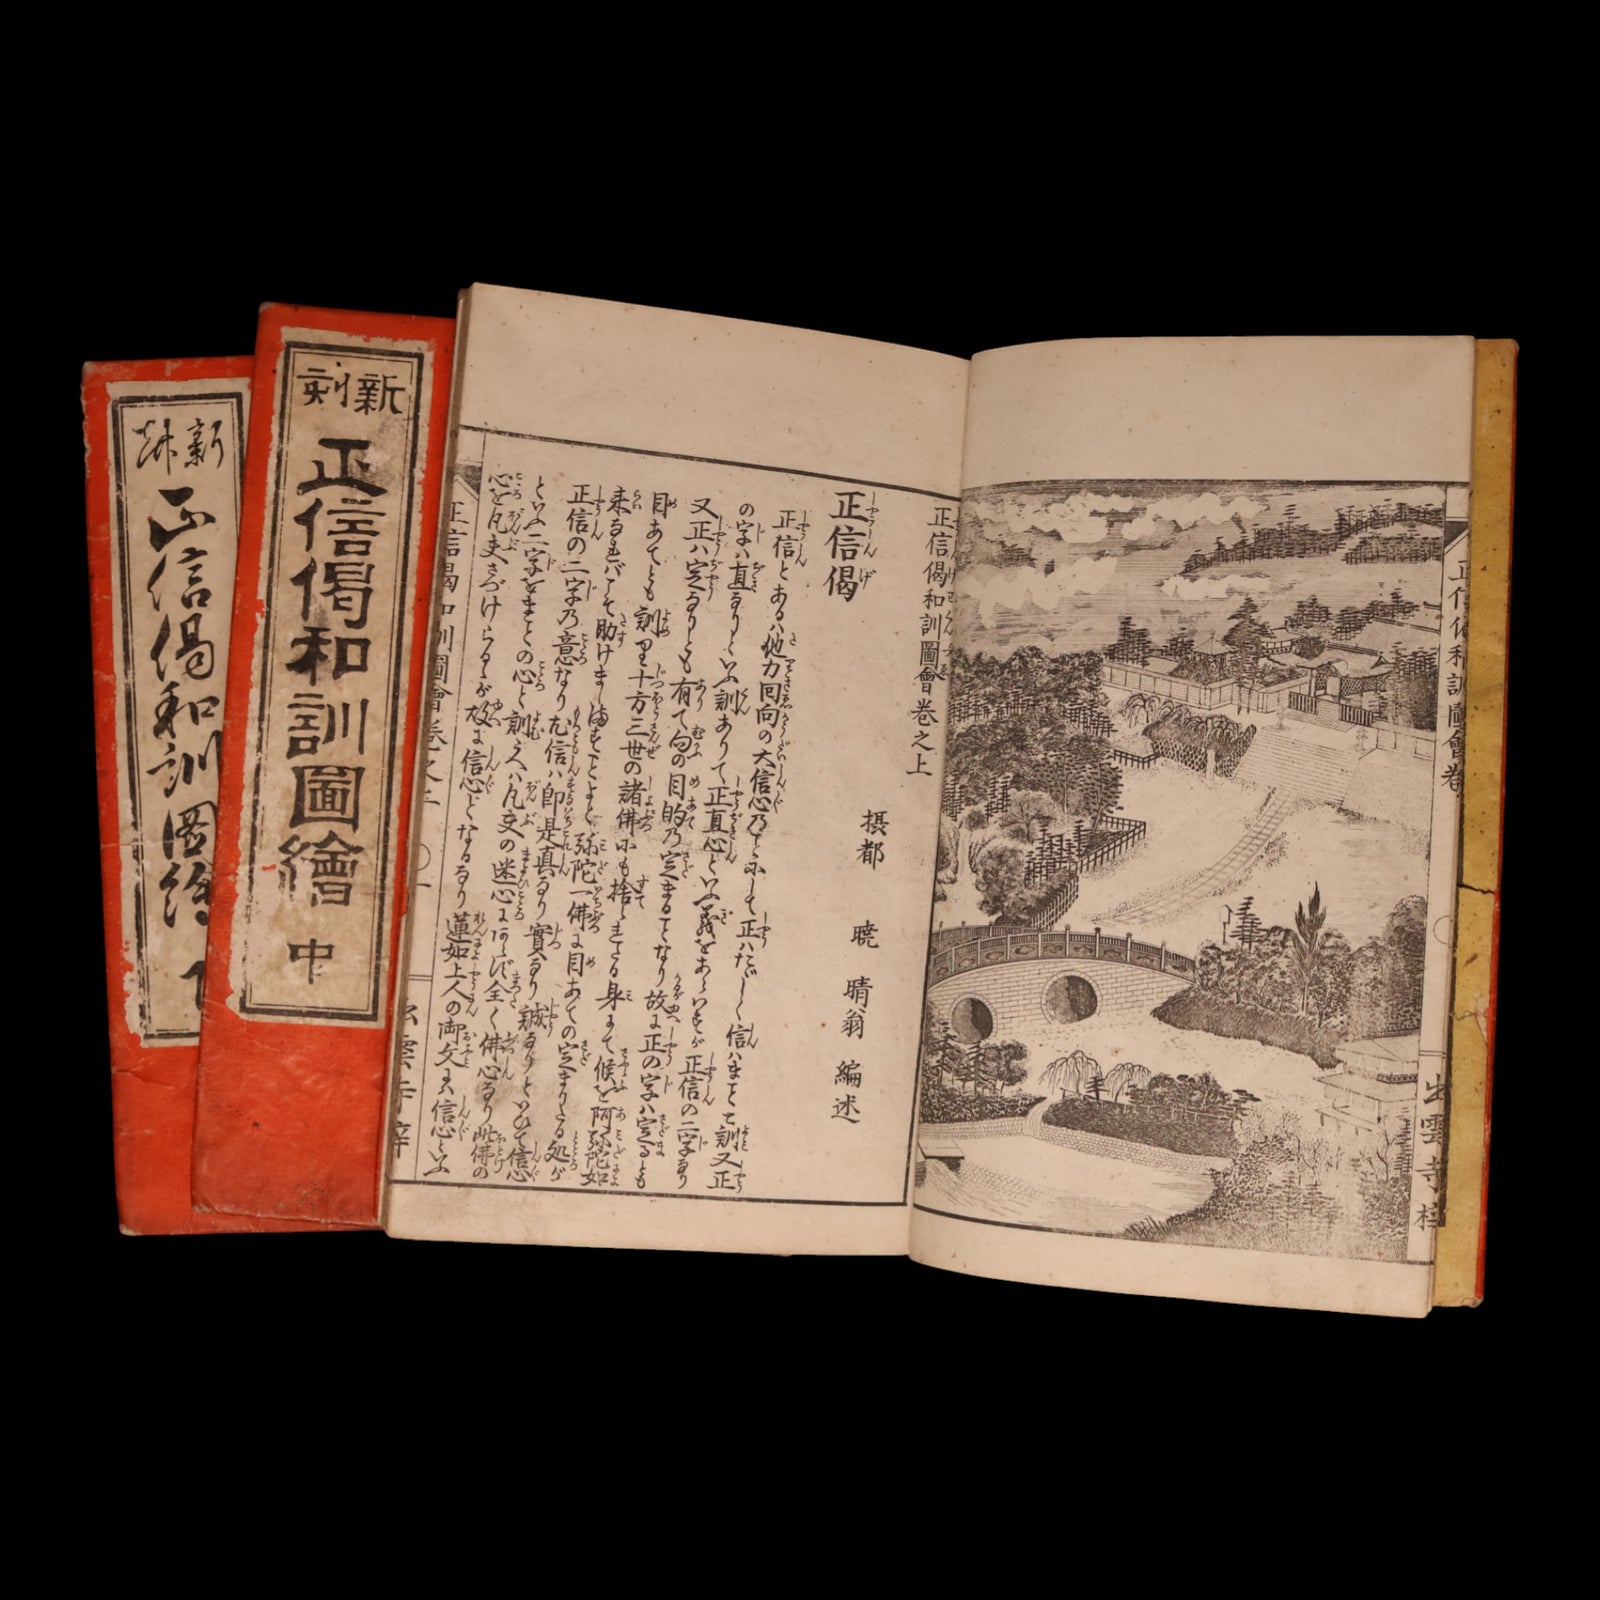 新刻
正信偈和訓圖繪 中
新
正信偈和訓圖繪 下
正信偈和訓圖會卷
出雲寺
正信偈和訓圖會卷之上
摂都 暁晴翁編述
正信偈
正信とあるハ他力回向の大信心乃ことにして正ハたゞしく信ハまことと訓又正
の字ハ直なりといふ訓ありて正直心といふ義をあらハせり正信の二字なり
又正ハ定なりとも有て向の目的乃定まることなり故に正の字ハ定るとも
目あてとも訓
十方三世の諸佛にも捨られたる身にて候を阿弥陀如
来なれバこそ助けましますことよと弥陀一佛に目あての定まりたる処が
正信の二字乃意なり
信ハ即是真なり實なり誠なりといひて信心
といふ二字をまことの心と訓
凡夫の迷心にあらず全く佛心なり此佛の
心を凡夫さづけらるゝが故に信心となるなり蓮如上人の御文に信心といふ
正信偈和訓圖會卷之上